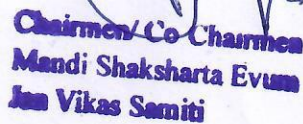 Chairmen/Co Chairmen
Mandi Shaksharta Evum
Jan Vikas Samiti